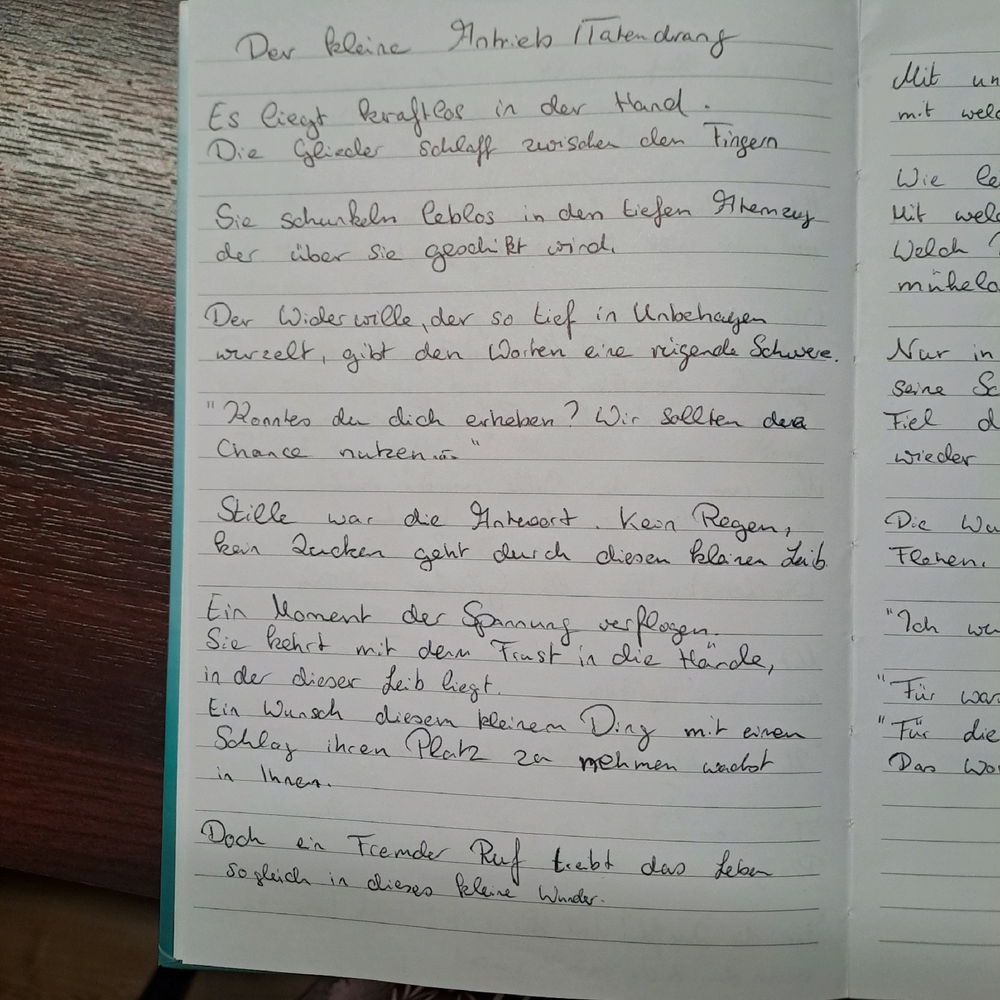 Der kleine Antrieb /Tatendrang
Es liegt kraftlos in der Hand.
Die Glieder schlaff zwischen den Fingern
Sie schunkeln leblos in den tiefen Atemzug
der über sie geschikt wird.
Der Widerwille, der so tief in Unbehagen
wurzelt, gibt den Worten eine Schwere.
"Konntes du dich erheben? Wir sollten
Chance nutzen..."
Stille war die Antwort. Kein Regen,
kein Zucken geht durch diesen kleinen Leib
Ein Moment der Spannung verflogen.
Sie kehrt mit dem Frust in die Hände,
in der dieser Leib liegt.
Ein Wunsch diesem kleinem Ding mit einen
Schlag ihren Platz zu nehmen wächst
in Ihnen.
Doch ein Fremder Ruf trebt das Leben
sogleich in dieses kleine Wunder.
Mit
mit
Wie
Mit
Welch
Nur in
seine
Fiel
wieder
Die
Flehen.
"Ich
"Für
"Für die
Das